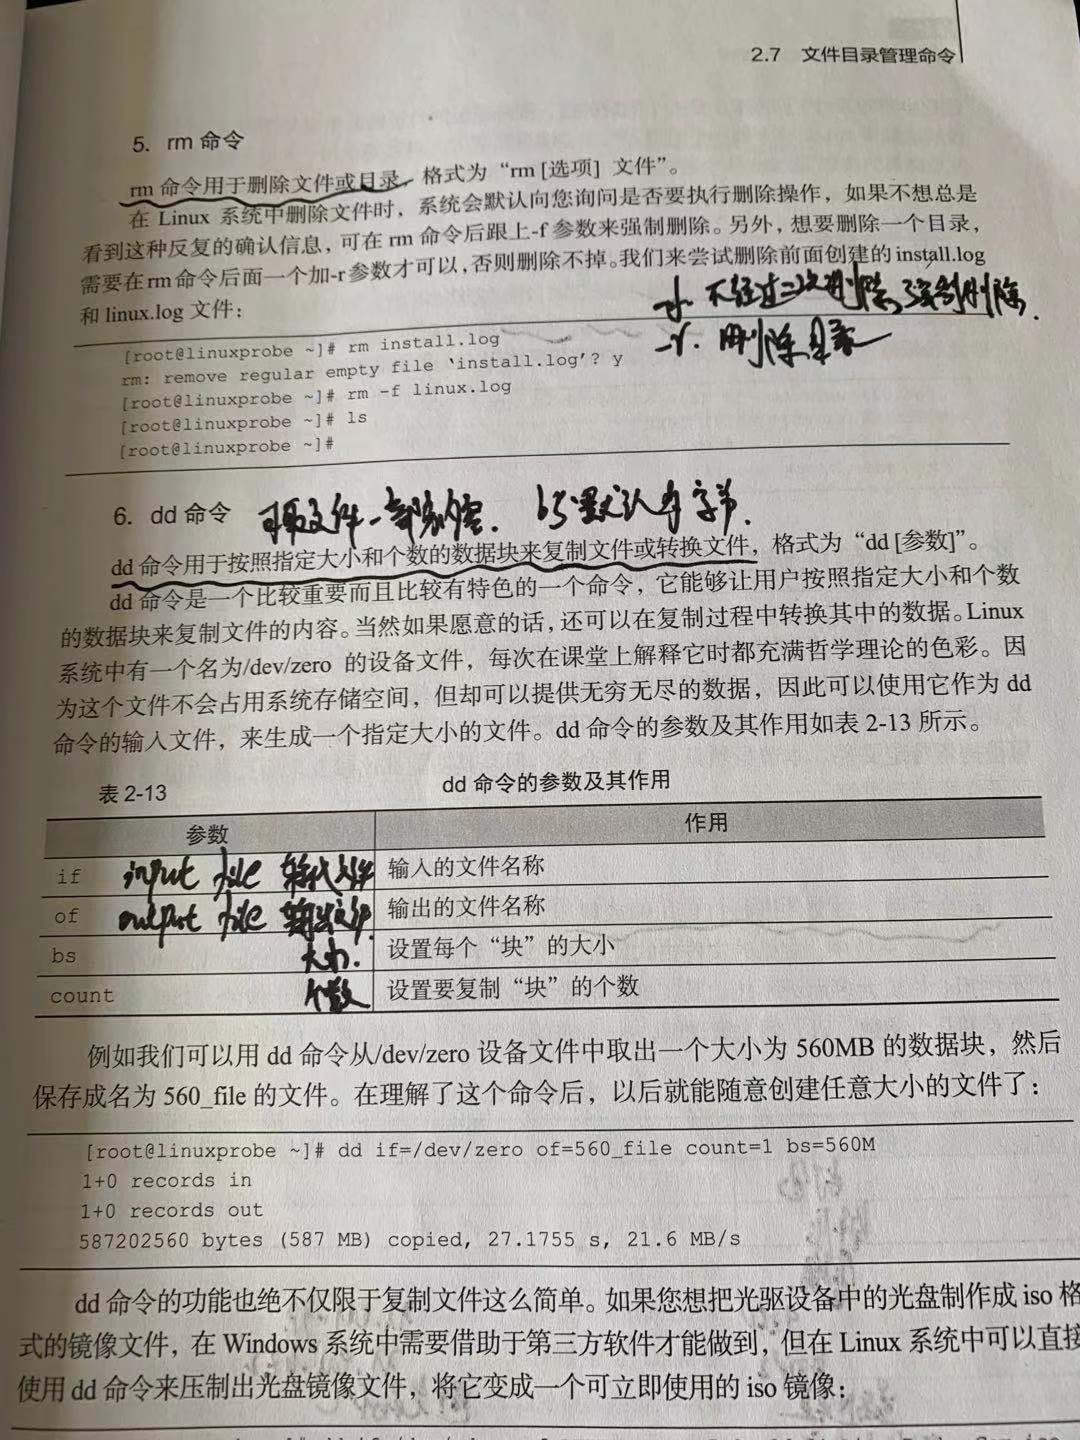 2.7 文件目录管理命令
5. rm 命令
rm 命令用于删除文件或目录，格式为“rm [选项] 文件”。
在 Linux 系统中删除文件时，系统会默认向您询问是否要执行删除操作，如果不想总是
看到这种反复的确认信息，可在 rm 命令后跟上-f 参数来强制删除。另外，想要删除一个目录，
需要在 rm 命令后面一个加-r 参数才可以，否则删除不掉。我们来尝试删除前面创建的 install.log
和 linux.log 文件：
-f. 不经过二次删除, 强制删除.
-r. 删除目录
[root@linuxprobe ~]# rm install.log
rm: remove regular empty file ‘install.log’? y
[root@linuxprobe ~]# rm -f linux.log
[root@linuxprobe ~]# ls
[root@linuxprobe ~]#
6. dd 命令 可取文件一部分内容. bs默认为字节.
dd 命令用于按照指定大小和个数的数据块来复制文件或转换文件，格式为“dd [参数]”。
dd 命令是一个比较重要而且比较有特色的一个命令，它能够让用户按照指定大小和个数
的数据块来复制文件的内容。当然如果愿意的话，还可以在复制过程中转换其中的数据。Linux
系统中有一个名为/dev/zero 的设备文件，每次在课堂上解释它时都充满哲学理论的色彩。因
为这个文件不会占用系统存储空间，但却可以提供无穷无尽的数据，因此可以使用它作为 dd
命令的输入文件，来生成一个指定大小的文件。dd 命令的参数及其作用如表 2-13 所示。
表 2-13 dd 命令的参数及其作用
参数 作用
if input file 输入的文件名称
of output file 输出文件 输出的文件名称
bs 大小. 设置每个“块”的大小
count 个数 设置要复制“块”的个数
例如我们可以用 dd 命令从/dev/zero 设备文件中取出一个大小为 560MB 的数据块，然后
保存成名为 560_file 的文件。在理解了这个命令后，以后就能随意创建任意大小的文件了：
[root@linuxprobe ~]# dd if=/dev/zero of=560_file count=1 bs=560M
1+0 records in
1+0 records out
587202560 bytes (587 MB) copied, 27.1755 s, 21.6 MB/s
dd 命令的功能也绝不仅限于复制文件这么简单。如果您想把光驱设备中的光盘制作成 iso 格
式的镜像文件，在 Windows 系统中需要借助于第三方软件才能做到，但在 Linux 系统中可以直接
使用 dd 命令来压制出光盘镜像文件，将它变成一个可立即使用的 iso 镜像：